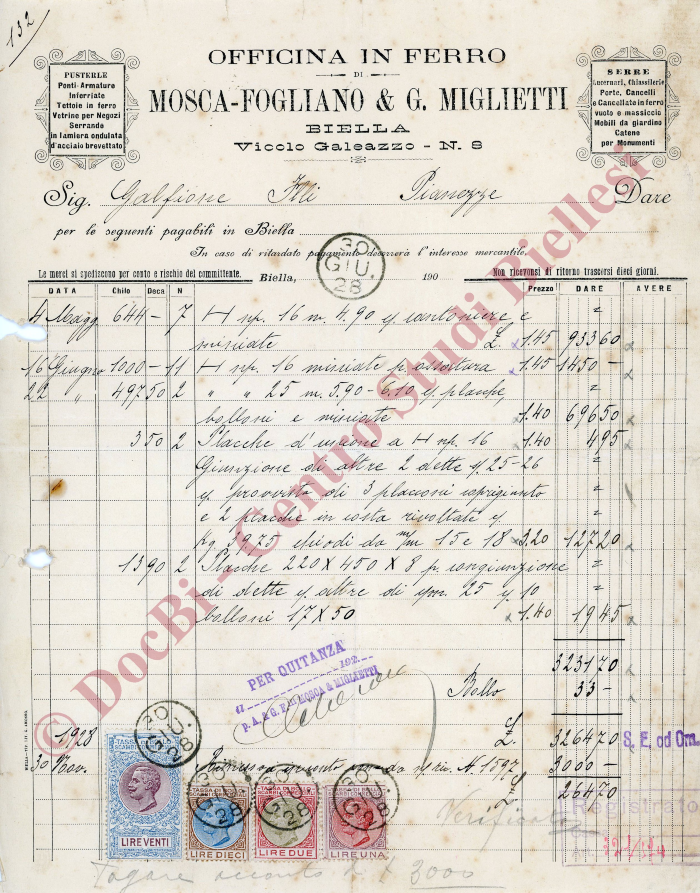 132
OFFICINA IN FERRO
DI
MOSCA-FOGLIANO & G. MIGLIETTI
BIELLA
Vicolo Galeazzo - N. 8
PUSTERLE
Ponti-Armature
Inferriate
Tettoie in ferro
Vetrine per Negozi
Serrande
in lamiera ondulata
d'acciaio brevettato
SERRE
Lucernari, Chiassilerie
Porte, Cancelli
e Cancellate in ferro
vuoto e massiccio
Mobili da giardino
Catene
per Monumenti
Sig. Galfione Flli Pianezze Dare
per le seguenti pagabili in Biella
In caso di ritardato pagamento decorrerà l'interesse mercantile.
Le merci si spediscono per conto e rischio del committente. Biella, 190 Non ricevonsi di ritorno trascorsi dieci giorni.
30
GIU.
28
DATA Chilo Deca N Prezzo DARE AVERE
4 Magg 644 - 7 H np. 16 m. 4.90 p. cantoniere e "
misiate £ 1.45 933 60
16 Giugno 1000 - 11 H np. 16 misiate p. 1.45 1450 -
22 " 497 50 2 " " 25 m. 5.90 - 6.10 p. placche "
bolloni e misiate 1.40 696 50
3 50 2 Placche d'unione a H np. 16 1.40 4 95
Giunzione di altre 2 dette p. 25-26 "
p. provvista di 3 placconi coprigiunto "
e 2 placche in costa rivoltate p. "
kg 39.75 chiodi da m/m 15 e 18 3.20 127 20
13 90 2 Placche 220 X 450 X 8 p. congiunzione "
di dette p altre di 25 p 10 "
bolloni 17 X 50 1.40 19 45
3231 70
Bollo 33 -
PER QUITANZA
li 192
P. A. & G. F.lli MOSCA & MIGLIETTI
£. 3264 70 S. E. od Om.
1928
30 Nov. Rimessa acconto N. 1597 3000 -
264 70
TASSA DI BOLLO
SCAMBI COMMERCIALI
LIRE VENTI
TASSA DI BOLLO
SCAMBI COMMERCIALI
LIRE DIECI
TASSA DI BOLLO
SCAMBI COMMERCIALI
LIRE DUE
TASSA DI BOLLO
SCAMBI COMMERCIALI
LIRE UNA
Registrato
Pagare acconto di £ 3000
© DocBi - Centro Studi Biellesi